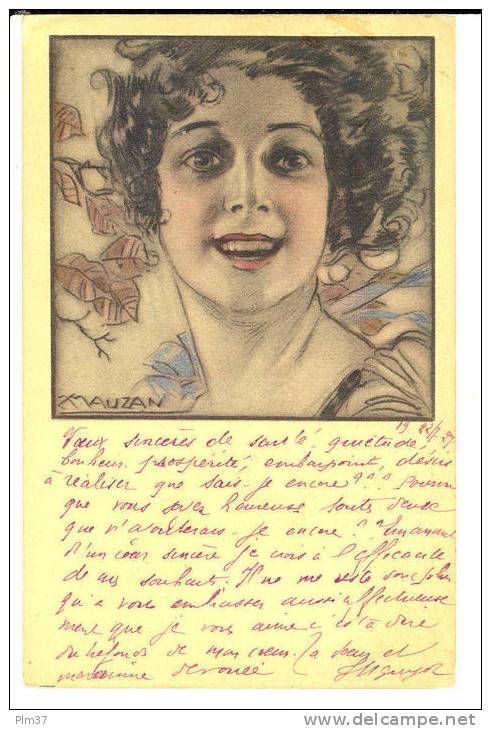 MAUZAN
19 22/1 27
Vœux sincères de santé, quiétude
bonheur. prospérité, embonpoint, désirs
à réaliser que sais-je encore ??? Pourvu
que vous soyez heureuse toutes deux
que n'ajouterais-je encore ?? Emanant
d'un cœur sincère je crois à l'efficacité
de mes souhaits. Il ne me reste donc plus
qu'à vous embrasser aussi affectueuse
ment que je vous aime c'est à dire
du plus fond de mon cœur. Ta sœur et
marraine dévouée
Plm37
www.delcampe.net